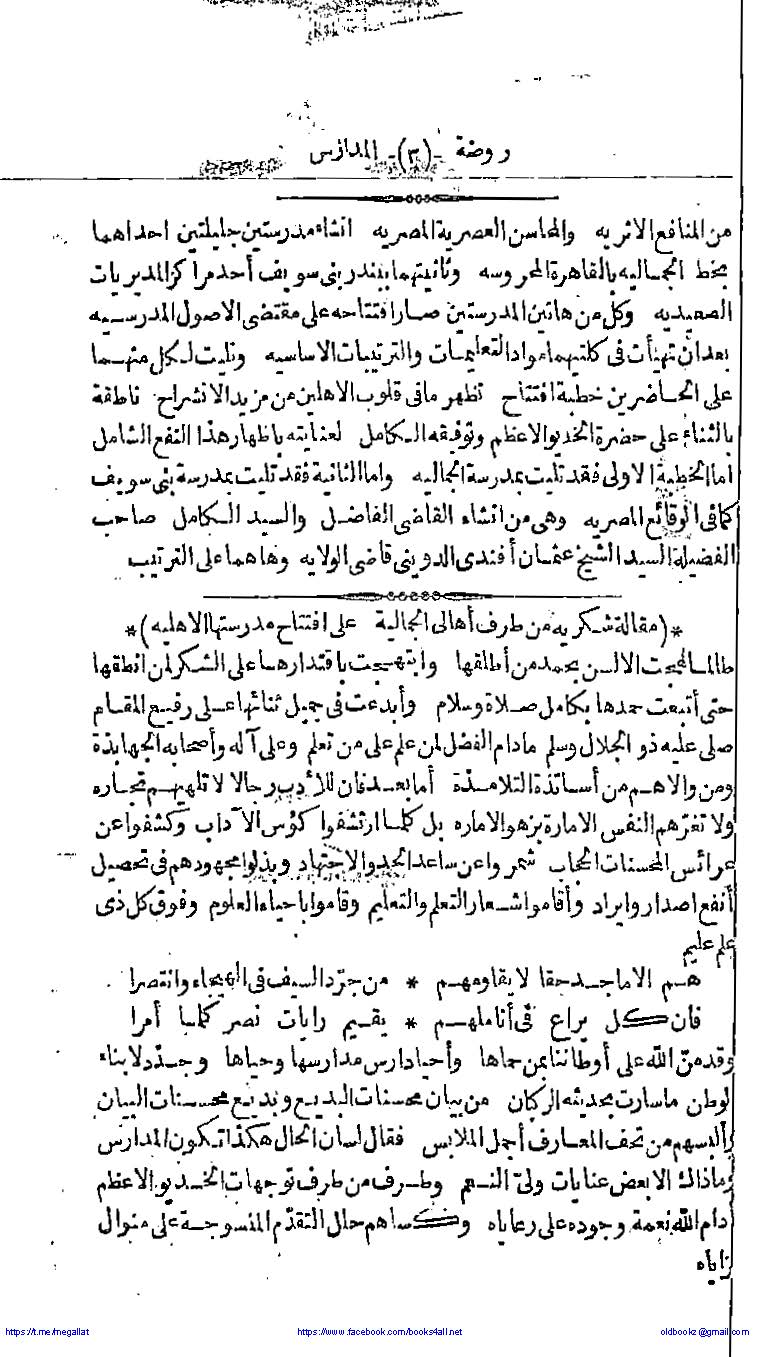 روضة -(٣)- المدارس
من المنافع الاثريه والمحاسن العصرية المصريه انشاء مدرستين جليلتين احداهما
بخط الجماليه بالقاهرة المحروسه وثانيتهما ببندر بنى سويف أحد مراكز المديريات
الصعيديه وكل من هاتين المدرستين صار افتتاحه على مقتضى الاصول المدرسيه
بعد ان تهيأت فى كلتيهما مواد التعليمات والترتيبات الاساسيه وتليت لكل منهما
على الحاضرين خطبة افتتاح تظهر مافى قلوب الاهلين من مزيد الانشراح ناطقة
بالثناء على حضرة الخديو الاعظم وتوفيقه الكامل لعنايته باظهار هذا النفع الشامل
اما الخطبة الاولى فقد تليت بمدرسة الجماليه واما الثانية فقد تليت بمدرسة بنى سويف
كما فى الوقائع المصريه وهى من انشاء القاضى الفاضل والسيد الكامل صاحب
الفضيلة السيد الشيخ عثمان أفندى الدوينى قاضى الولايه وها هما على الترتيب
*(مقالة شكريه من طرف أهالى الجمالية على افتتاح مدرستها الاهليه)*
طالما لهجت الالسن بحمد من أطلقها وابتهجت باقتدارها على الشكر لمن انطقها
حتى أتبعت حمدها بكامل صلاة وسلام وأبدعت فى جميل ثنائها على رفيع المقام
صلى عليه ذو الجلال وسلم مادام الفضل لمن علم على من تعلم وعلى آله وأصحابه الجهابذة
ومن والاهم من أساتذة التلامذة أما بعد فان للأدب رجالا لا تلهيهم تجاره
ولا تغرّهم النفس الامارة بزهو الاماره بل كلما ارتشفوا كؤس الآداب وكشفوا عن
عرائس المحسنات الحجاب شمروا عن ساعد الجد والاجتهاد وبذلوا مجهودهم فى تحصيل
أنفع اصدار وايراد وأقاموا شعار التعلم والتعليم وقاموا باحياء العلوم وفوق كل ذى
علم عليم
هم الاماجد حقا لا يقاومهم * من جرّد السيف فى الهيجاء وانتصرا
فان كل يراع فى أناملهم * يقيم رايات نصر كلما أمرا
وقد منّ الله على أوطاننا بمن حماها وأحيا دارس مدارسها وحياها وجدّد لابناء
لوطن ما سارت بحديثه الركبان من بيان محسنات البديع وبديع محسنات البيان
وألبسهم من تحف المعارف أجمل الملابس فقال لسان الحال هكذا تكون المدارس
وماذاك الا بعض عنايات ولىّ النعم وطرف من طرف توجهات الخديو الاعظم
أدام الله نعمة وجوده على رعاياه وكساهم حلل التقدّم المنسوجة على منوال
زاياه
https://t.me/megallat
https://www.facebook.com/books4all.net
oldbookz@gmail.com